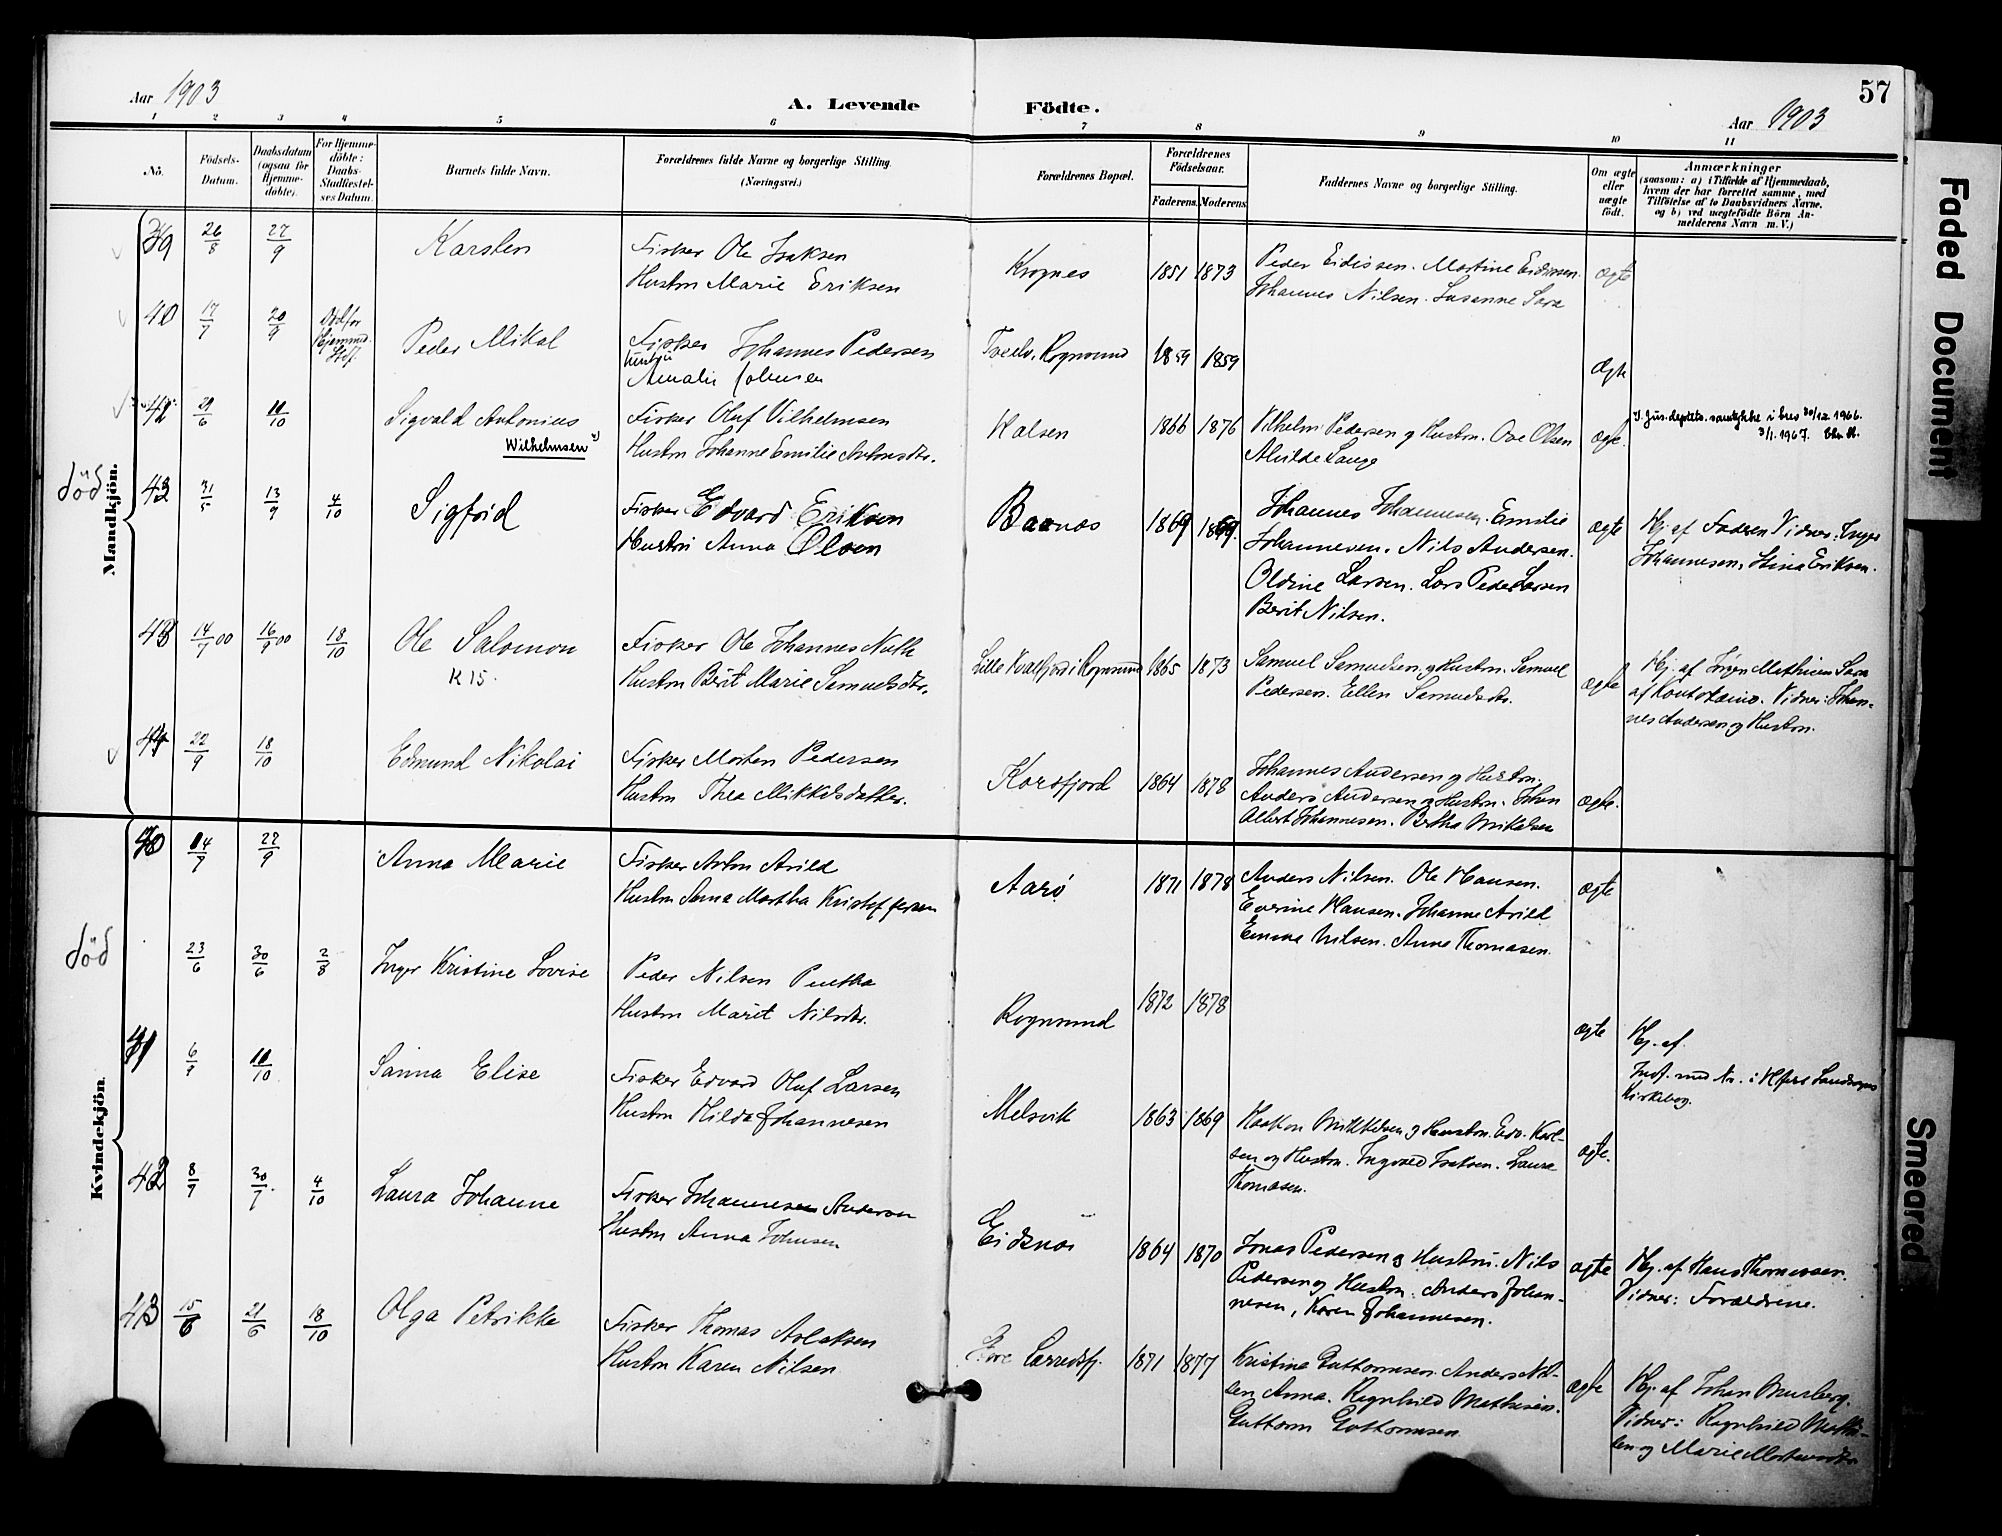 57
Aar 1903
A. Levende Födte.
Aar 1903
1 2 3 4 5 6 7 8 9 10 11
No.
Födsels-
Datum.
Daabsdatum
(ogsaa for
Hjemme-
döbte).
For Hjemme-
döbte:
Daabs-
Stadfæstel-
ses Datum.
Barnets fulde Navn.
Forældrenes fulde Navne og borgerlige Stilling.
(Næringsvei.)
Forældrenes Bopæl.
Forældrenes
Födselsaar.
Faderens. Moderens.
Faddernes Navne og borgerlige Stilling.
Om ægte
eller
uægte
födt.
Anmærkninger
(saasom: a) i Tilfælde af Hjemmedaab,
hvem der har forrettet samme, med
Tilföielse af to Daabsvidners Navne,
og b) ved uægtefödte Börn An-
melderens Navn m. V.)
Mandkjön.
39 26/8 27/9 Karsten
Fisker Ole Isaksen
Hustru Marie Eriksen
Krognes 1851 1873
Peder Eidissen. Martine Eidissen.
Johannes Nilsen. Susanne Sara
ægte
40 17/7 20/9
Død før
Hjemmed.
Stf.
Peder Mikal
Fisker Johannes Pedersen
hustru
Amalie Johnsen
Rognsund 1859 1859
ægte
42 21/6 11/10 Sigvald Antonius
Wilhelmsen
Fisker Oluf Vilhelmsen
Hustru Johanne Emilie Antonsdtr.
Kalsen 1866 1876
Vilhelm Pedersen og Hustru. Ove Olsen
Alvilde Lange
ægte.
Jus.deptets. samtykke i brev 30/12 1966.
3/1.1967.
död
43 31/5 13/9 4/10 Sigfrid
Fisker Edvard Eriksen
Hustru Anna Olsen
Baanæs 1869 1869.
Johannes Johannesen. Emilie
Johannesen. Nils Andersen.
Oldine Larsen. Lars Peder Larsen
Berit Nilsen.
ægte
Hj. af Faderen Vidner: Inger
Johannesen, Stina Eriksen.
43 14/7 00 16/9 00 18/10 Ole Salomon
K 15.
Fisker Ole Johannes Nutti
Hustru Berit Marie Samuelsdtr.
Lille Kvalfjord i Rognsund 1865 1873
Samuel Samuelsen og Hustru. Samuel
Pedersen. Ellen Samuelsdtr.
ægte
Hj. af Jörgen Mathisen Sara
af Koutokeino. Vidner: Johan-
nes Andersen og Hustru.
44 22/9 18/10 Edmund Nikolai
Fisker Morten Pedersen
Hustru Thea Mikkelsdatter.
Korsfjord 1864 1878
Johannes Andersen og Hustru.
Anders Andersen og Hustru. Johan
Albert Johannesen. Bertha Mikalsen
ægte.
Kvindekjön.
40 14/7 27/9 Anna Marie
Fisker Anton Arild
Hustru Anna Martha Kristoffersen
Aarö 1871 1878
Anders Nilsen. Ole Hansen.
Everine Hansen. Johanne Arild
Emma Nilsen. Anne Thomasen.
ægte
död
23/6 30/6 2/8 Inger Kristine Lovise
Peder Nilsen Pentha
Hustru Marit Nilsdtr.
Rognsund 1872 1878
ægte
Hj. af.
Indf. med No. i Hfest Landsogns
Kirkebog.
41 6/9 11/10 Sanna Elise
Fisker Edvard Oluf Larsen
Hustru Hilda Johannesen
Melsvik 1863 1869
Haakon Mikkelsen og Hustru. Edv. Karl-
sen og Hustru. Ingvald Isaksen. Laura
Thomasen.
ægte.
42 8/7 30/7 4/10 Laura Johanne
Fisker Johannesen Andersen
Hustru Anna Johnsen
Eidsnæs 1864 1870
Jonas Pedersen og Hustru. Nils
Pedersen og Hustru. Anders Johan-
nesen, Karen Johannesen.
ægte
Hj. af Hans Thomassen.
Vidner: Forældrene.
43 15/6 21/6 18/10 Olga Petrikke
Fisker Thomas Aslaksen
Hustru Karen Nilsen
Store Lerredsfj. 1871 1877
Kristine Guttormsen. Anders Nil-
sen Anna. Ragnhild Mathisen.
Guttorm Guttormsen
ægte
Hj. af Johan Murberg.
Vidner: Ragnhild Mathi-
sen og Marie Mortensdtr.
Faded Document
Smeared